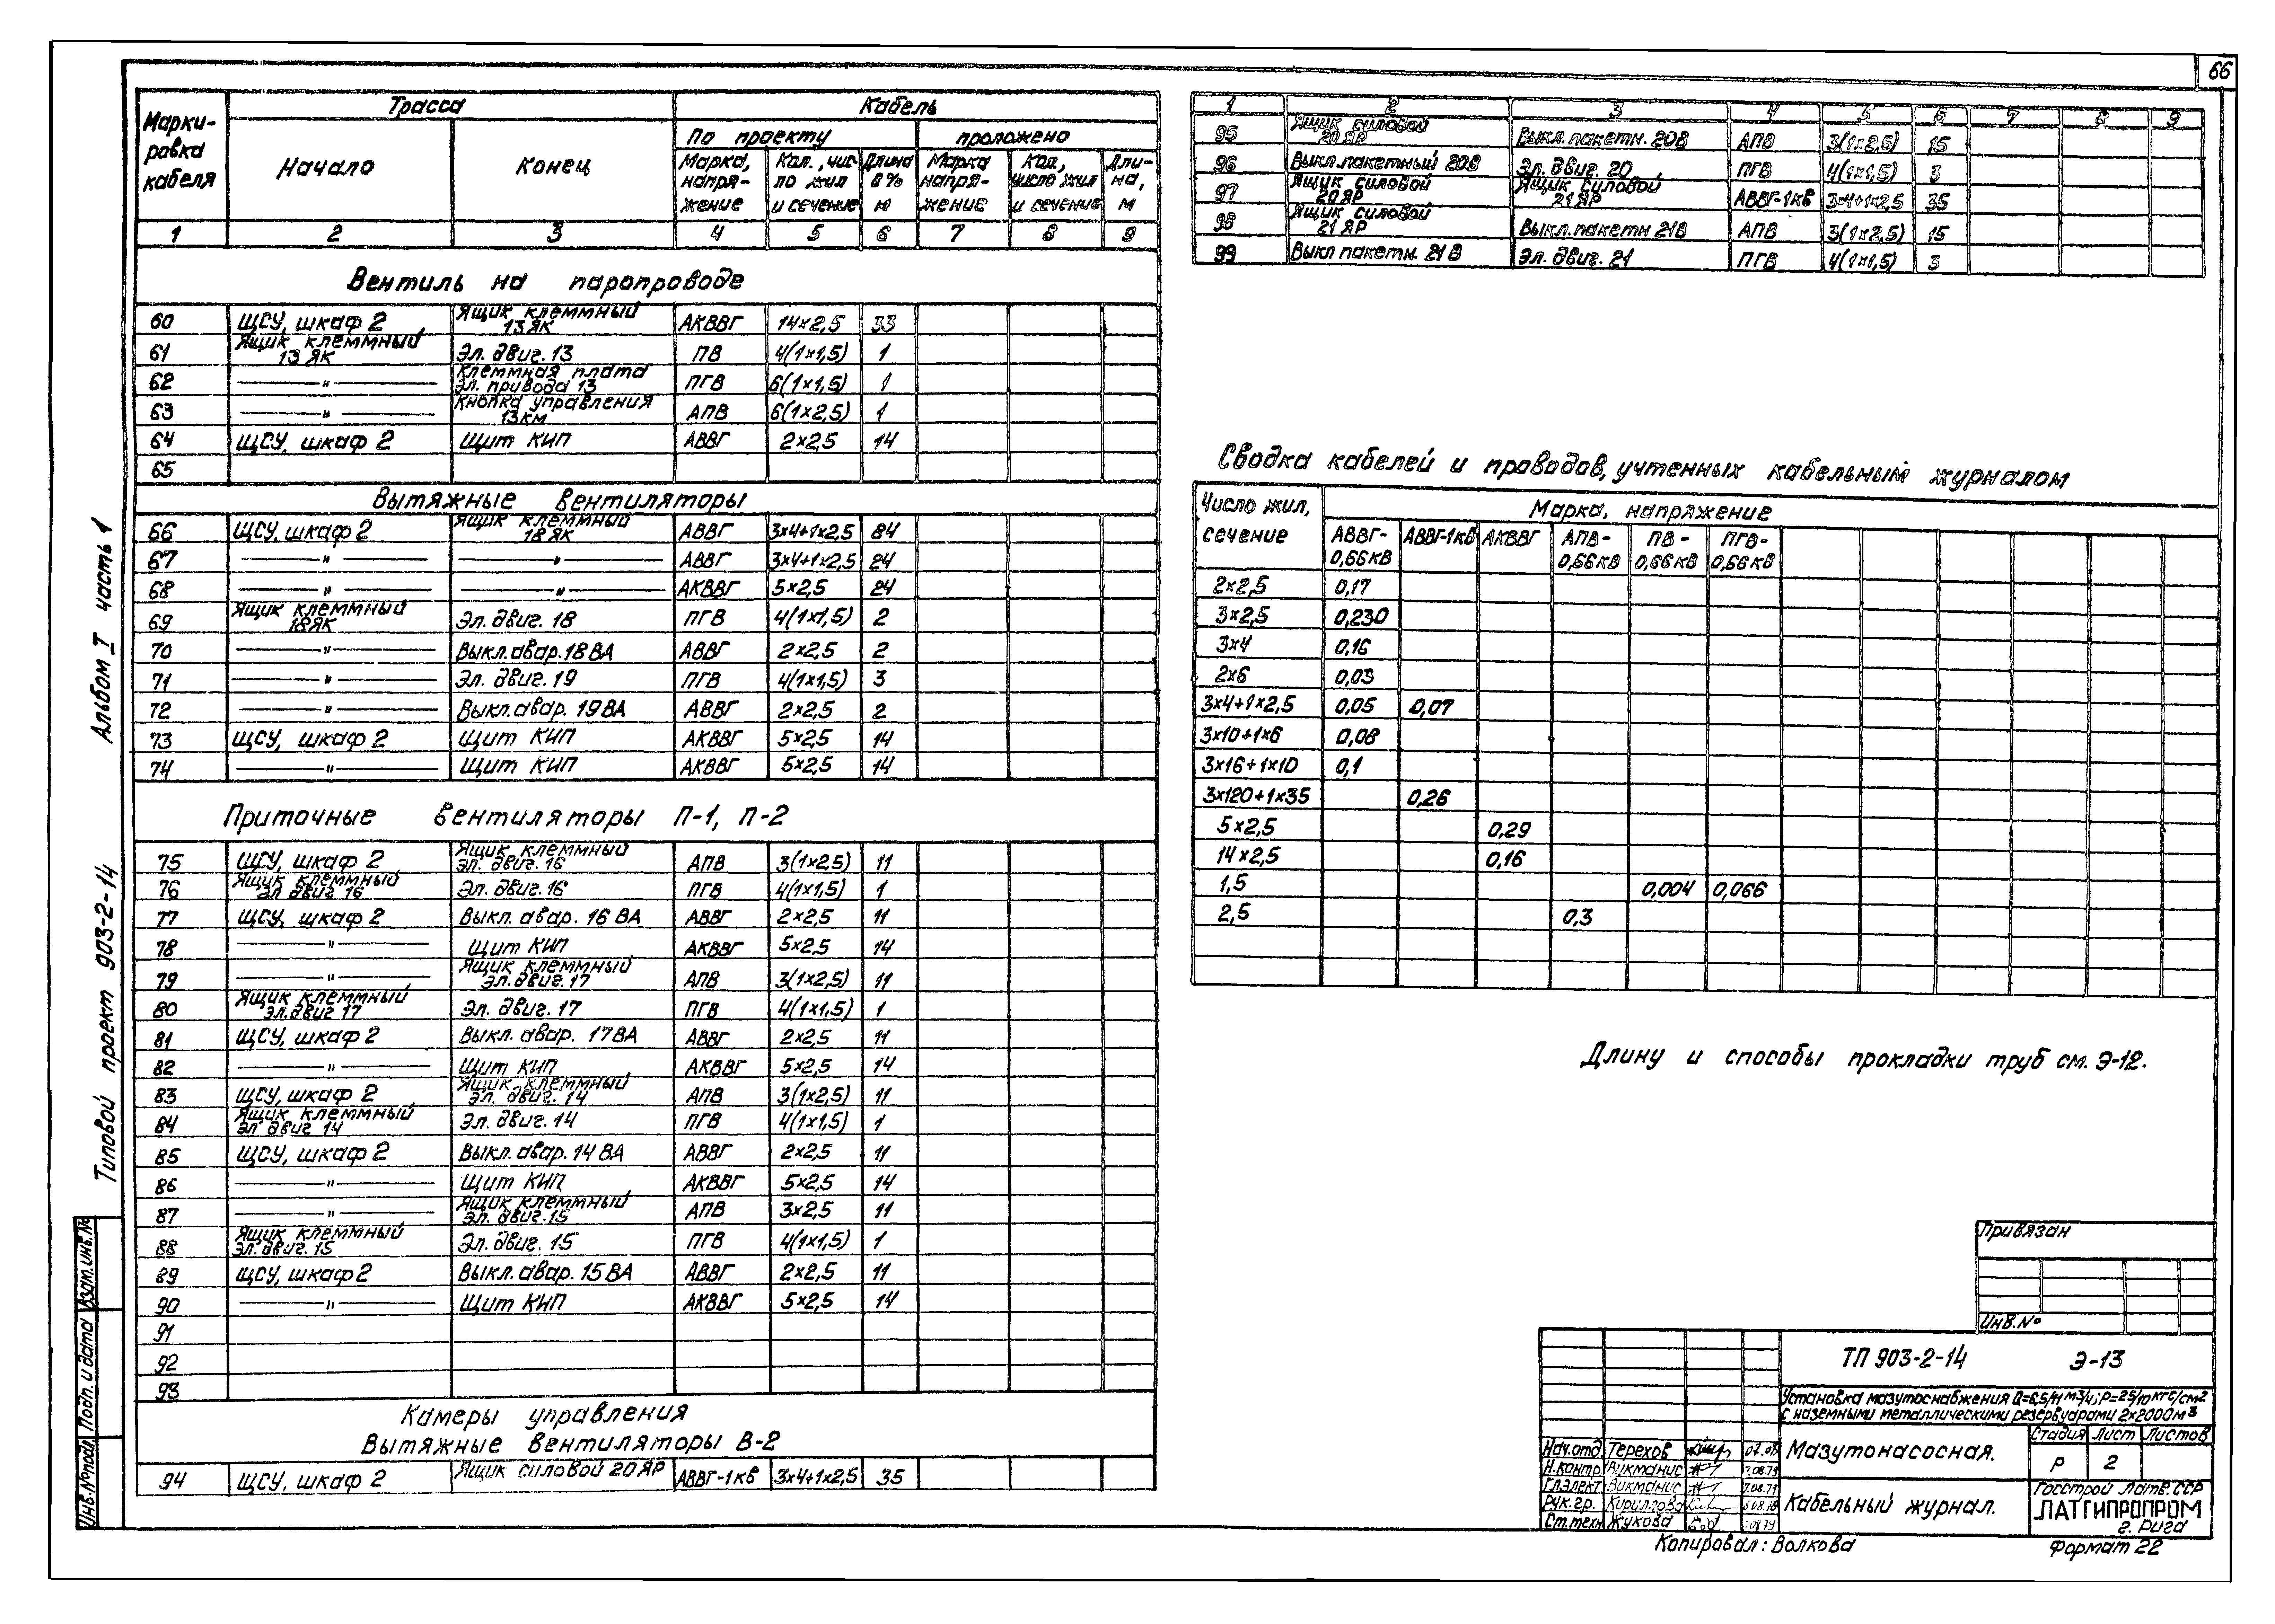 66
Марки-
ровка
кабеля
Трасса
Кабель
Начало
Конец
По проекту
проложено
Марка,
напря-
жение
Кол., чис-
ло жил
и сечение
Длина
в %
м
Марка
напря-
жение
Кол.,
число жил
и сечение
Дли-
на,
м
1 2 3 4 5 6 7 8 9
Вентиль на паропроводе
60 ЩСУ, шкаф 2 Ящик клеммный 13ЯК АКВВГ 14×2,5 33
61 Ящик клеммный 13ЯК Эл. двиг. 13 ПВ 4(1×1,5) 1
62 —"— Клеммная плата эл. привода 13 ПГВ 6(1×1,5) 1
63 —"— Кнопка управления 13КМ АПВ 6(1×2,5) 1
64 ЩСУ, шкаф 2 Щит КИП АВВГ 2×2,5 14
65
Вытяжные вентиляторы
66 ЩСУ, шкаф 2 Ящик клеммный 18ЯК АВВГ 3×4+1×2,5 84
67 —"— —"— АВВГ 3×4+1×2,5 24
68 —"— —"— АКВВГ 5×2,5 24
69 Ящик клеммный 18ЯК Эл. двиг. 18 ПГВ 4(1×1,5) 2
70 —"— Выкл. авар. 18ВА АВВГ 2×2,5 2
71 —"— Эл. двиг. 19 ПГВ 4(1×1,5) 3
72 —"— Выкл. авар. 19ВА АВВГ 2×2,5 2
73 ЩСУ, шкаф 2 Щит КИП АКВВГ 5×2,5 14
74 —"— Щит КИП АКВВГ 5×2,5 14
Приточные вентиляторы П-1, П-2
75 ЩСУ, шкаф 2 Ящик клеммный эл. двиг. 16 АПВ 3(1×2,5) 11
76 Ящик клеммный эл двиг 16 Эл. двиг. 16 ПГВ 4(1×1,5) 1
77 ЩСУ, шкаф 2 Выкл. авар. 16 ВА АВВГ 2×2,5 11
78 —"— Щит КИП АКВВГ 5×2,5 14
79 —"— Ящик клеммный эл. двиг. 17 АПВ 3(1×2,5) 11
80 Ящик клеммный эл. двиг 17 Эл. двиг. 17 ПГВ 4(1×1,5) 1
81 ЩСУ, шкаф 2 Выкл. авар. 17ВА АВВГ 2×2,5 11
82 —"— Щит КИП АКВВГ 5×2,5 14
83 ЩСУ, шкаф 2 Ящик клеммный эл. двиг. 14 АПВ 3(1×2,5) 11
84 Ящик клеммный эл двиг 14 Эл. двиг. 14 ПГВ 4(1×1,5) 1
85 ЩСУ, шкаф 2 Выкл. авар. 14 ВА АВВГ 2×2,5 11
86 —"— Щит КИП АКВВГ 5×2,5 14
87 —"— Ящик клеммный эл. двиг. 15 АПВ 3×2,5 11
88 Ящик клеммный эл. двиг. 15 Эл. двиг. 15 ПГВ 4(1×1,5) 1
89 ЩСУ, шкаф 2 Выкл. авар. 15 ВА АВВГ 2×2,5 11
90 —"— Щит КИП АКВВГ 5×2,5 14
91
92
93
Камеры управления
Вытяжные вентиляторы В-2
94 ЩСУ, шкаф 2 Ящик силовой 20ЯР АВВГ-1кв 3×4+1×2,5 35
1 2 3 4 5 6 7 8 9
95 Ящик силовой 20ЯР Выкл. пакетн. 20В АПВ 3(1×2,5) 15
96 Выкл. пакетный 20В Эл. двиг. 20 ПГВ 4(1×1,5) 3
97 Ящик силовой 20ЯР Ящик силовой 21ЯР АВВГ-1кв 3×4+1×2,5 35
98 Ящик силовой 21ЯР Выкл. пакетн 21В АПВ 3(1×2,5) 15
99 Выкл пакетн. 21В Эл. двиг. 21 ПГВ 4(1×1,5) 3
Сводка кабелей и проводов, учтенных кабельным журналом
Число жил,
сечение
Марка, напряжение
АВВГ-0,66кв АВВГ-1кв АКВВГ АПВ-0,66кв ПВ-0,66кв ПГВ-0,66кв
2×2,5 0,17
3×2,5 0,230
3×4 0,16
2×6 0,03
3×4+1×2,5 0,05 0,07
3×10+1×6 0,08
3×16+1×10 0,1
3×120+1×35 0,26
5×2,5 0,29
14×2,5 0,16
1,5 0,004 0,066
2,5 0,3
Длину и способы прокладки труб см. Э-12.
Привязан
Инв. №
ТП 903-2-14 Э-13
Установка мазутоснабжения Q=6,5/11 м3/ч; P=25/10 кгс/см2
с наземными металлическими резервуарами 2×2000м3
Нач.отд Терехов
Н.контр Викманис 7.08.79
Гл.элект Викманис 7.08.79
Рук. гр. Кириллова
Ст.техн Жукова
Мазутонасосная.
Стадия Лист Листов
Р 2
Кабельный журнал.
Госстрой Латв. ССР
ЛАТГИПРОПРОМ
г. Рига
Копировал: Волкова
Формат 22
Типовой проект 903-2-14 Альбом I часть 1
Инв.№подл. Подп. и дата Взам.инв.№